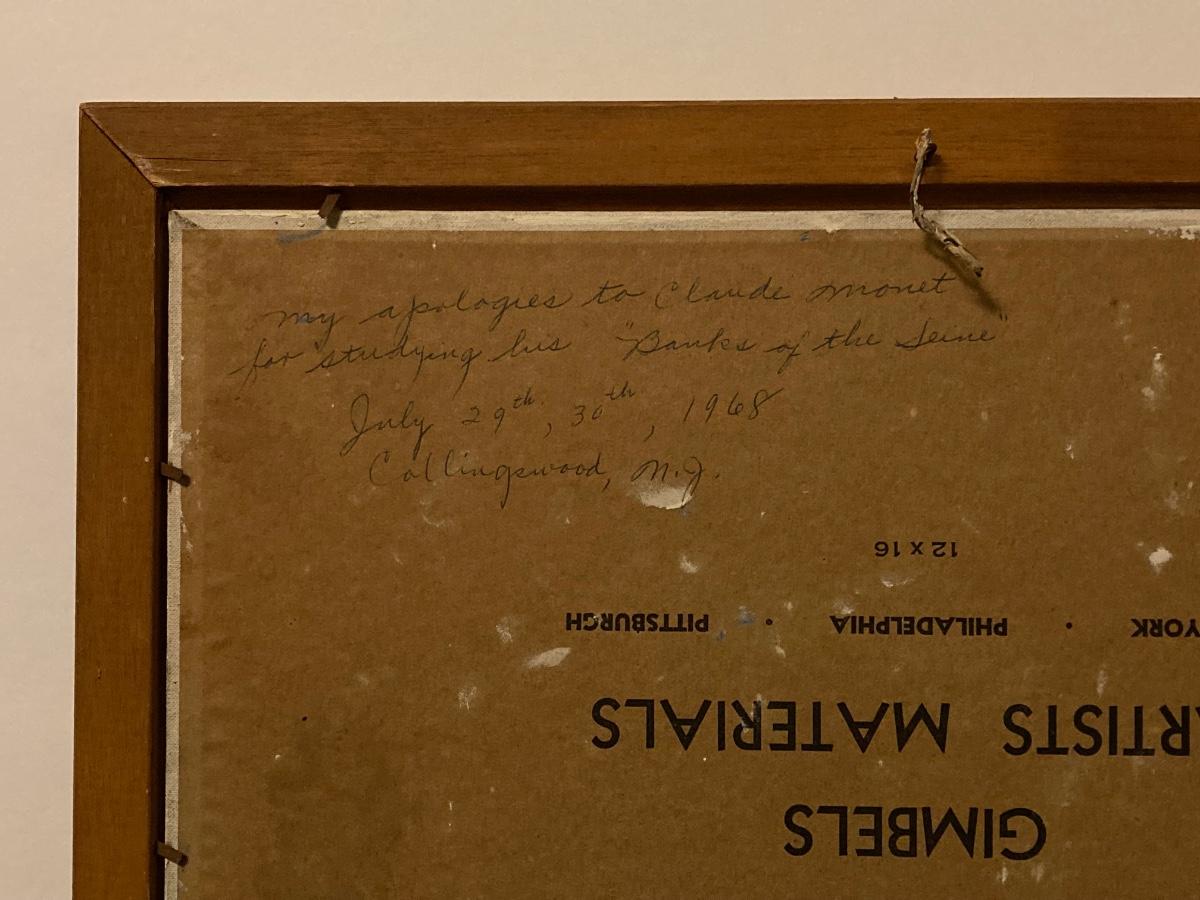 my apologies to Claude Monet
for studying his "Banks of the Seine"
July 29th, 30th, 1968
Collingswood, N.J.
GIMBELS
ARTISTS MATERIALS
YORK • PHILADELPHIA • PITTSBURGH
12 x 16